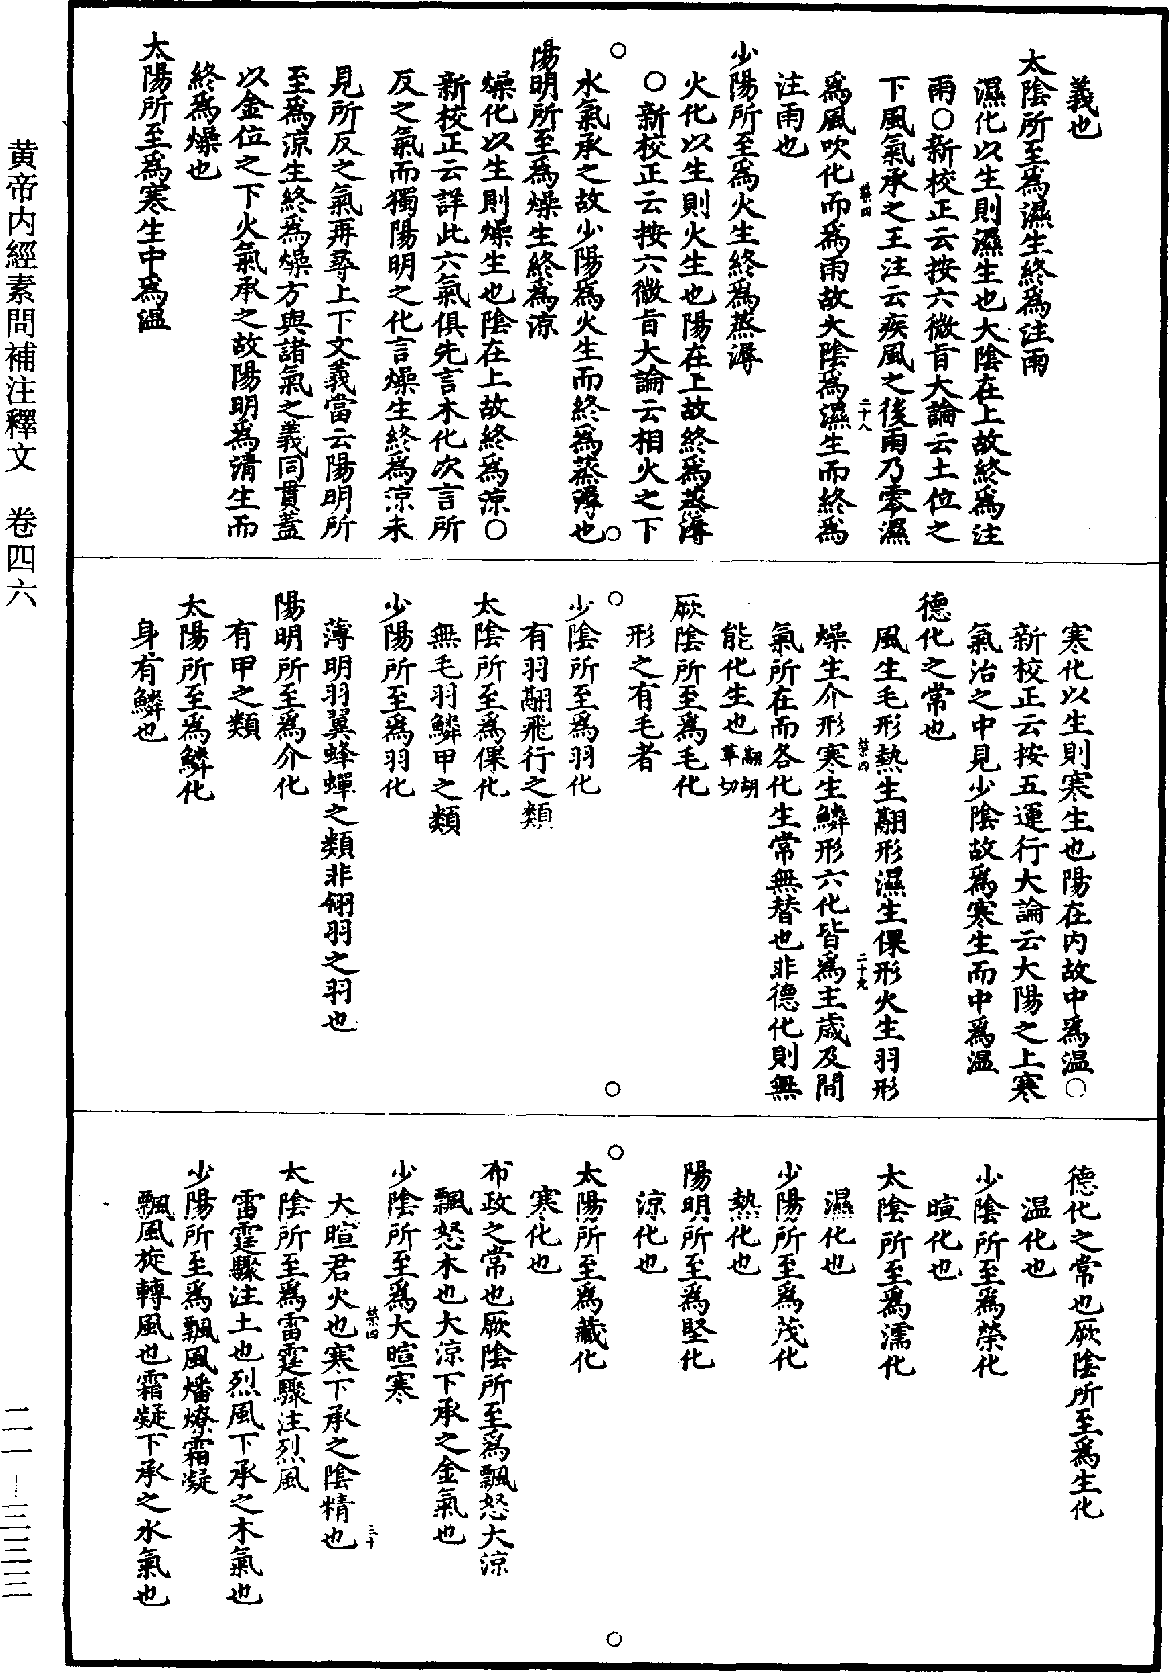 義也
太陰所至爲濕生終爲注雨
濕化以生則濕生也太陰在上故終爲注
雨○新校正云按六微旨大論云土位之
下風氣承之王注云疾風之後雨乃零濕
爲風吹化而爲雨故太陰爲濕生而終爲
注雨也
少陽所至爲火生終爲蒸溽
火化以生則火生也陽在上故終爲蒸溽
○新校正云按六微旨大論云相火之下
水氣承之故少陽爲火生而終爲蒸溽也
陽明所至爲燥生終爲涼
燥化以生則燥生也陰在上故終爲涼○
新校正云詳此六氣俱先言木化次言所
反之氣而獨陽明之化言燥生終爲涼未
見所反之氣再尋上下文義當云陽明所
至爲涼生終爲燥方與諸氣之義同貫蓋
以金位之下火氣承之故陽明爲清生而
終爲燥也
太陽所至爲寒生中爲温
寒化以生則寒生也陽在内故中爲温○
新校正云按五運行大論云太陽之上寒
氣治之中見少陰故爲寒生而中爲温
德化之常也
風生毛形熱生翮形濕生倮形火生羽形
燥生介形寒生鱗形六化皆爲主歲及間
氣所在而各化生常無替也非德化則無
能化生也翮胡革切
厥陰所至爲毛化
形之有毛者
少陰所至爲羽化
有羽翮飛行之類
太陰所至爲倮化
無毛羽鱗甲之類
少陽所至爲羽化
薄明羽翼蜂蟬之類非翎羽之羽也
陽明所至爲介化
有甲之類
太陽所至爲鱗化
身有鱗也
德化之常也厥陰所至爲生化
温化也
少陰所至爲榮化
暄化也
太陰所至爲濡化
濕化也
少陽所至爲茂化
熱化也
陽明所至爲堅化
涼化也
太陽所至爲藏化
寒化也
布政之常也厥陰所至爲飄怒大涼
飄怒木也大涼下承之金氣也
少陰所至爲大暄寒
大暄君火也寒下承之陰精也
太陰所至爲雷霆驟注烈風
雷霆驟注土也烈風下承之木氣也
少陽所至爲飄風燔燎霜凝
飄風旋轉風也霜凝下承之水氣也
禁四
二十八
禁四
二十九
禁四
三十
黄帝内經素問補注釋文　卷四六
二一—三三三